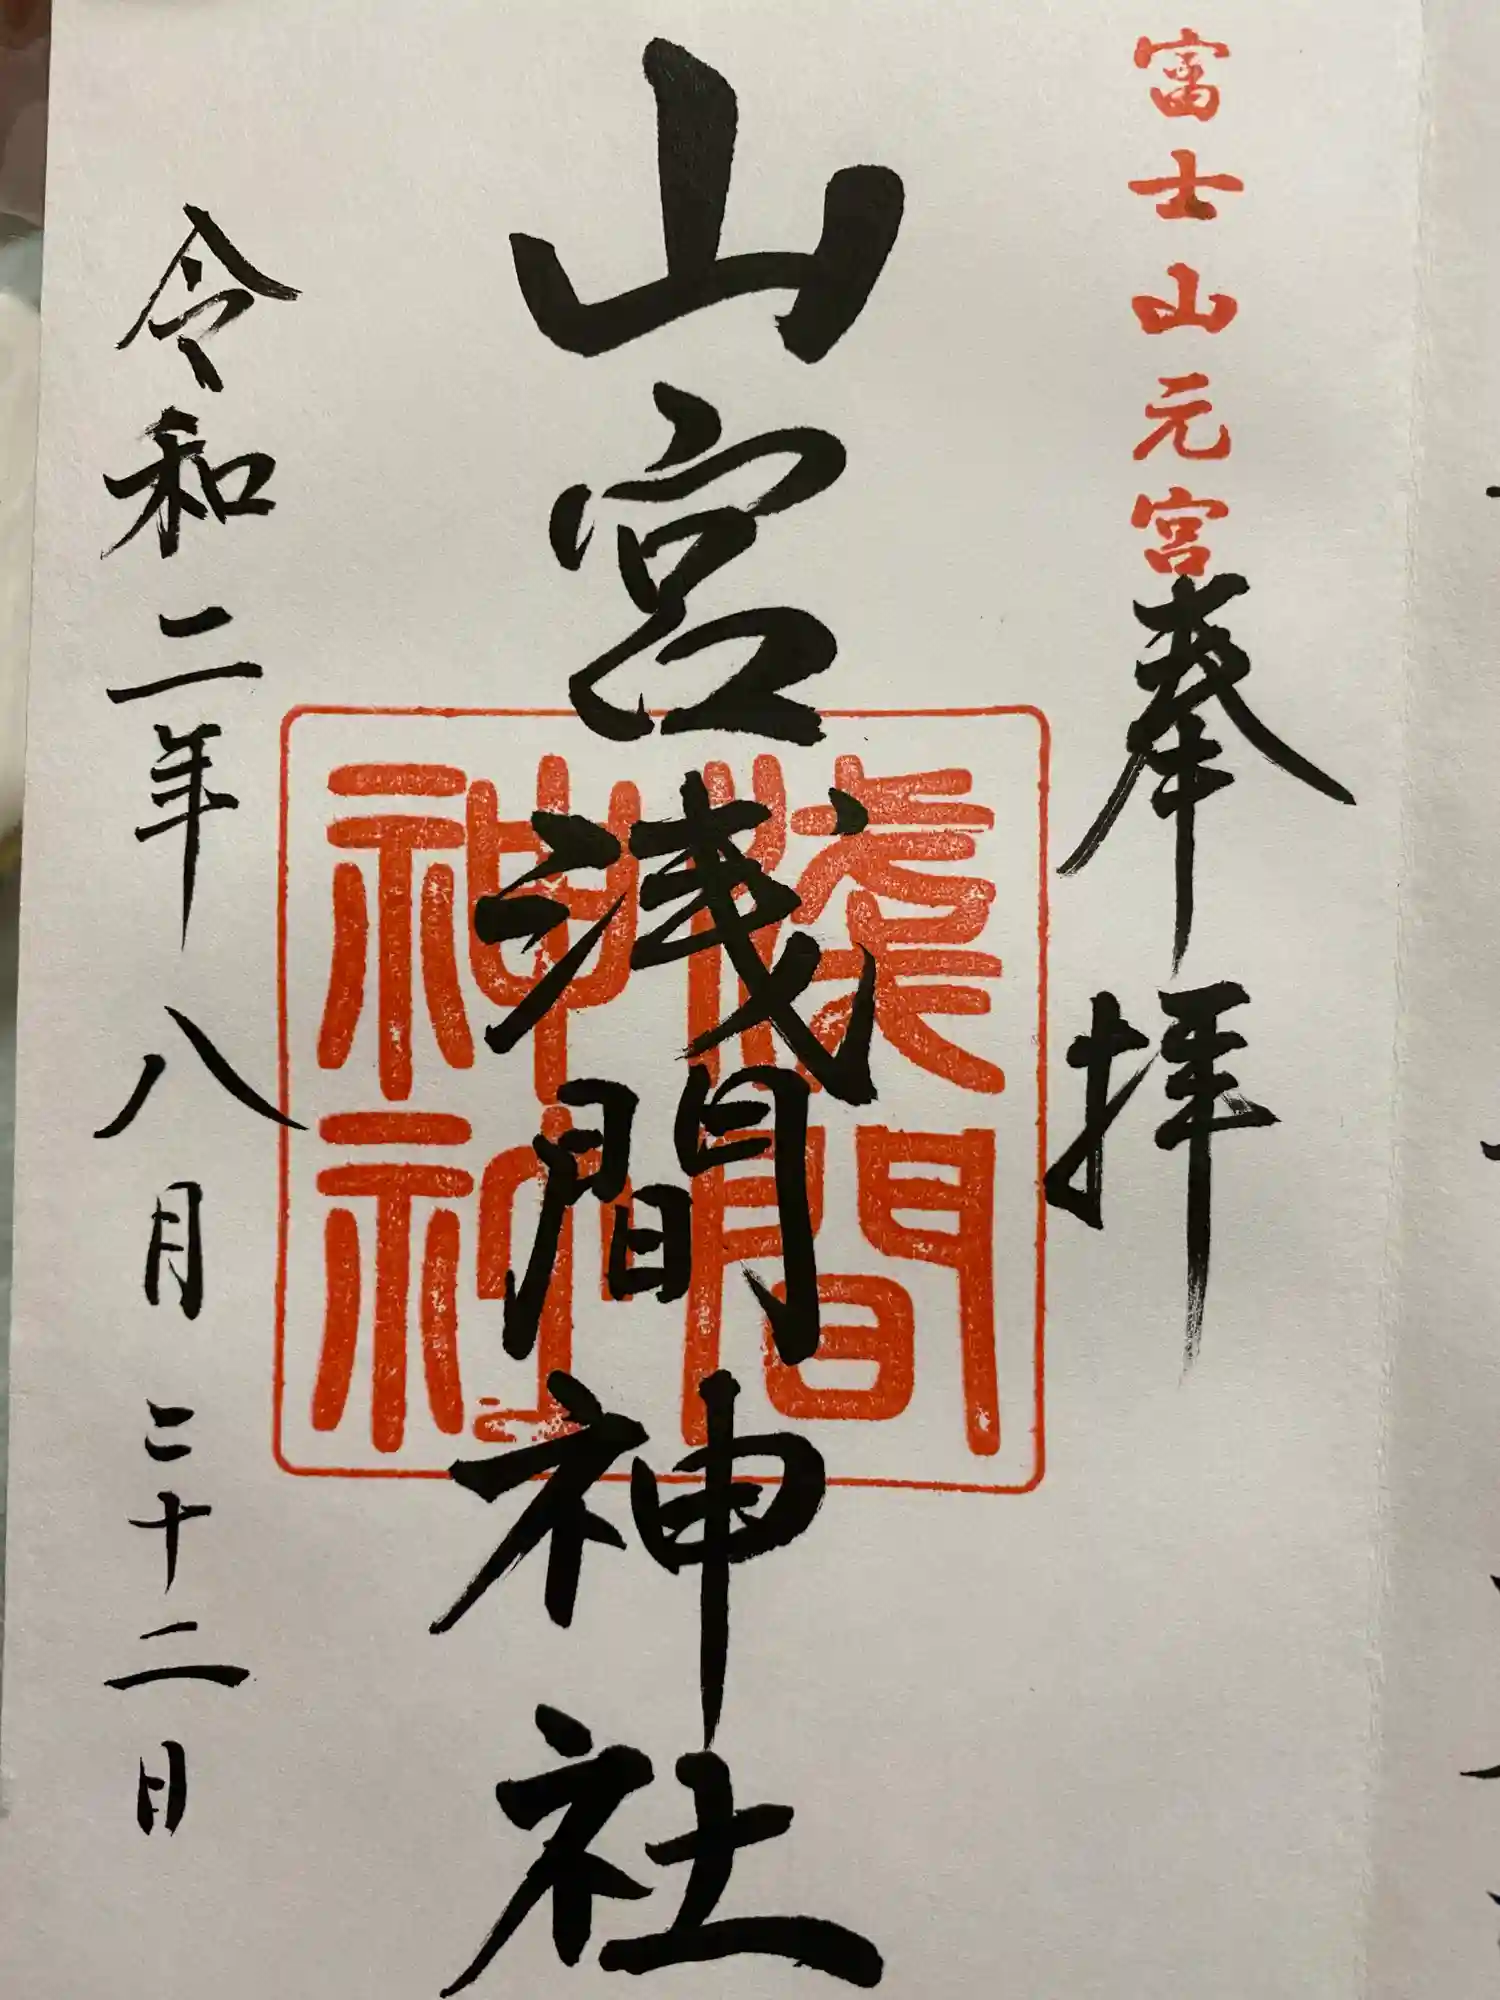 富士山元宮
奉拝
山宮浅間神社
浅間神社
令和二年八月二十二日